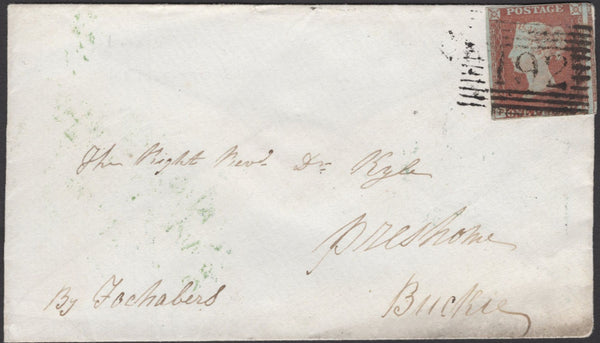 POSTAGE
The Right Revd. Dr Kyle
Preshome
By Fochabers
Buckie